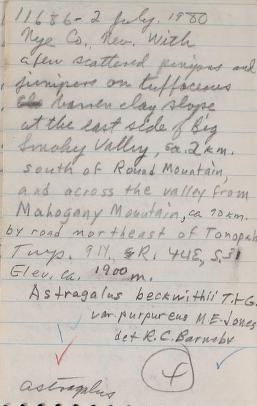 11686 - 2 July, 1980
Nye Co., Nev. With
a few scattered pinyons and
junipers on tuffaceous
barren clay slope
at the east side of Big
Smoky Valley, ca. 2 km.
south of Round Mountain,
and across the valley from
Mahogany Mountain, ca 70 km.
by road northeast of Tonopah
Twp. 9N., R. 44E, S.31
Elev. ca. 1900 m.
Astragalus beckwithii T.+G.
var. purpureus M.E. Jones
det R.C. Barneby
4
astragalus